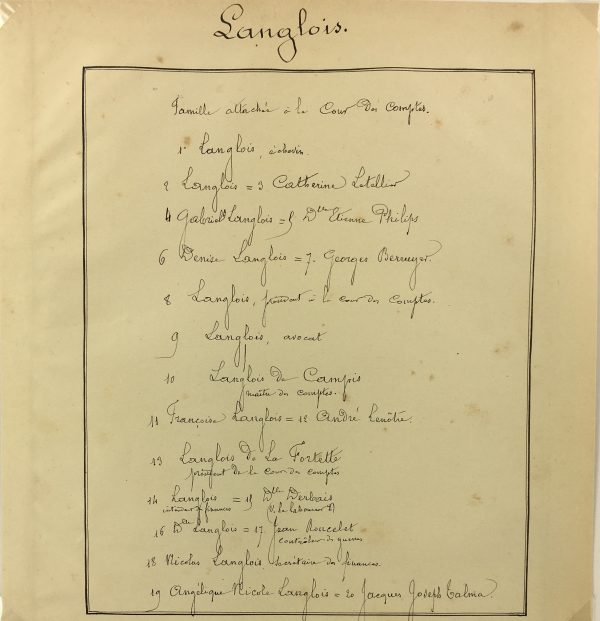 Langlois.
Famille attachée à la Cour des Comptes.
1 Langlois, échevin.
2 Langlois = 3 Catherine Letellier
4 Gabriel Langlois = 5 Dlle Etienne Philips
6 Denise Langlois = 7. Georges Berruyer.
8 Langlois, président à la cour des comptes.
9 Langlois, avocat
10 Langlois de Campis
maître des comptes.
11 Françoise Langlois = 12 André Lenôtre.
13 Langlois de La Fortelle
président de la Cour des comptes
14 Langlois = 15 Dlle Derbais
intendant des finances
16 Dlle Langlois = 17. Jean
contrôleur des guerres
18 Nicolas Langlois secrétaire des finances.
19 Angélique Nicole Langlois = 20 Jacques Joseph Talma.